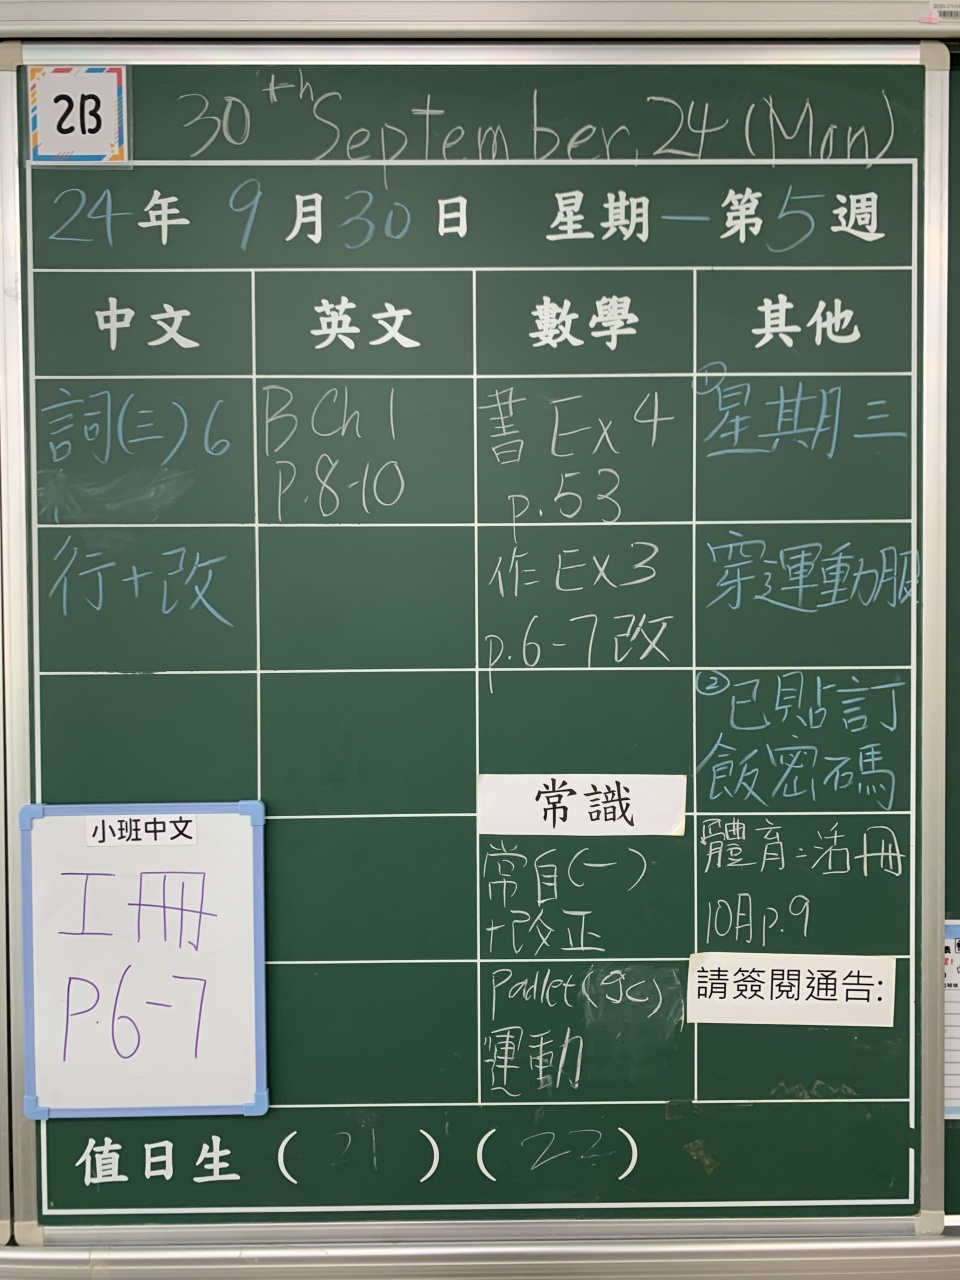 2B
30th September, 24 (Mon)
24年 9月30日 星期一 第5週
中文 英文 數學 其他
詞(三)6
行+改
小班中文
工冊
P.6-7
B Ch 1
P.8-10
書 Ex 4
p.53
作 Ex3
p.6-7改
常識
常自(一)
+改正
padlet(gc)
運動
①星期三
穿運動服
②已貼訂
飯密碼
體育:活冊
10月p.9
請簽閱通告:
值日生 (21) (22)